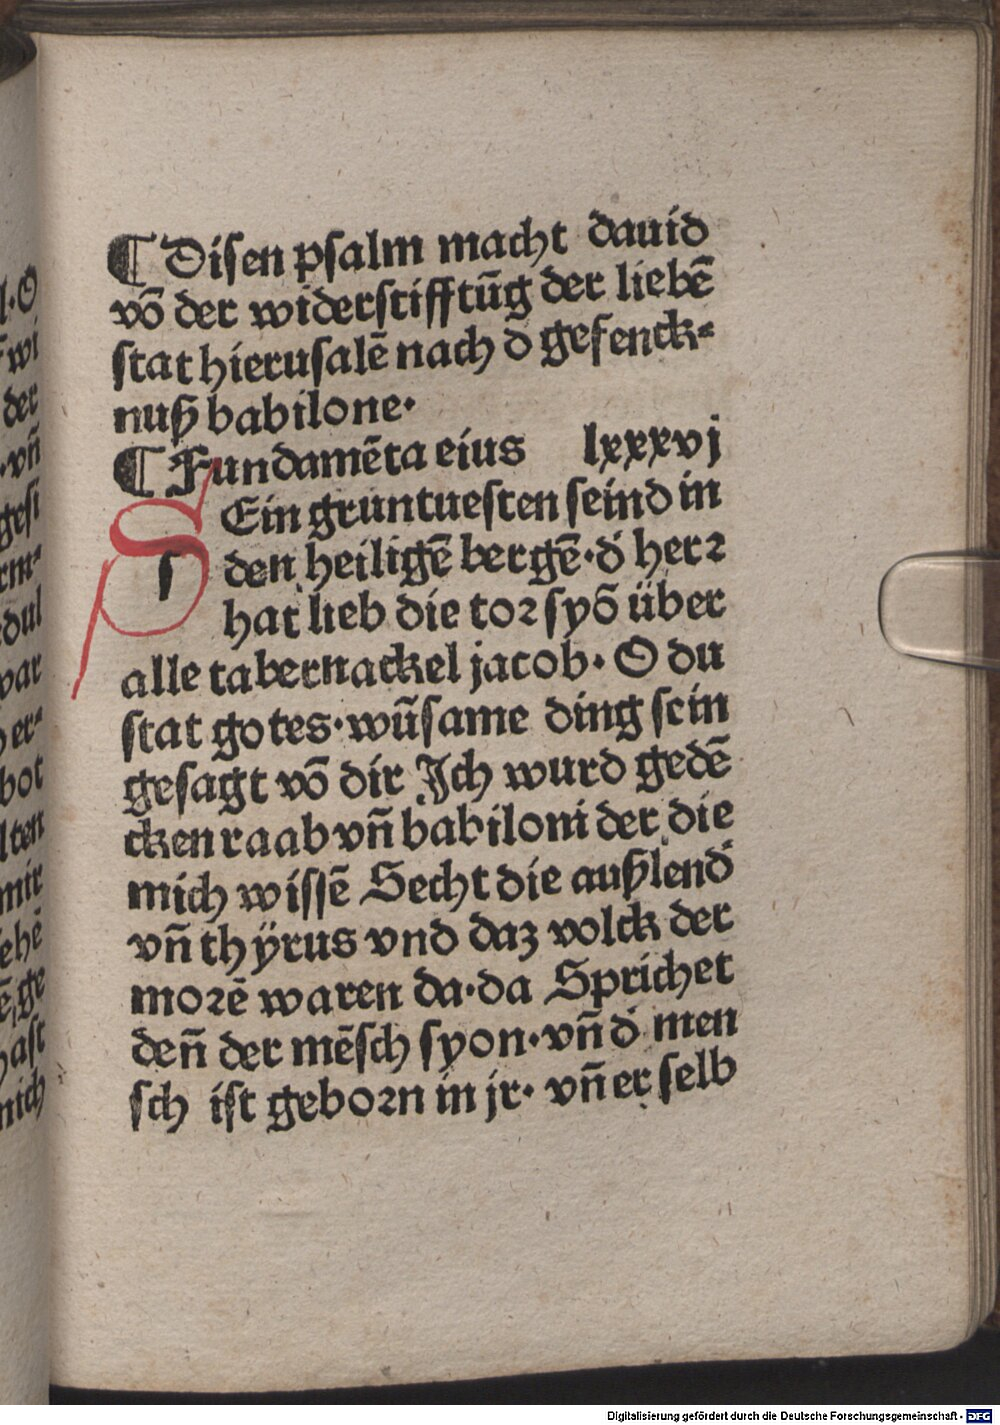 ¶ Disen psalm macht dauid
vō der widerstifftūg der liebē
stat hierusalē nach d̄ gefenck⸗
nuß babilone·
¶ Fundamēta eius lxxxvj
SEin gruntuesten seind in
den heiligē bergē·d̄ herꝛ
hat lieb die toꝛ syō über
alle tabernackel jacob· O du
stat gotes·wūsame ding sein
gesagt vō dir Ich wurd gedē
cken raab vn̄ babiloni der die
mich wissē Secht die außlend̄
vn̄ thÿrus vnd daz volck der
moꝛē waren da·da Sprichet
den̄ der mēsch syon·vn̄ d̄ men
sch ist geboꝛn in jr· vn̄ er selb
l·O
wi
der
·vn̄
gesi
rm⸗
dul
war
er⸗
bot
lten
mir
ehē
ē,ge
hast
mich
Digitalisierung gefördert durch die Deutsche Forschungsgemeinschaft - DFG